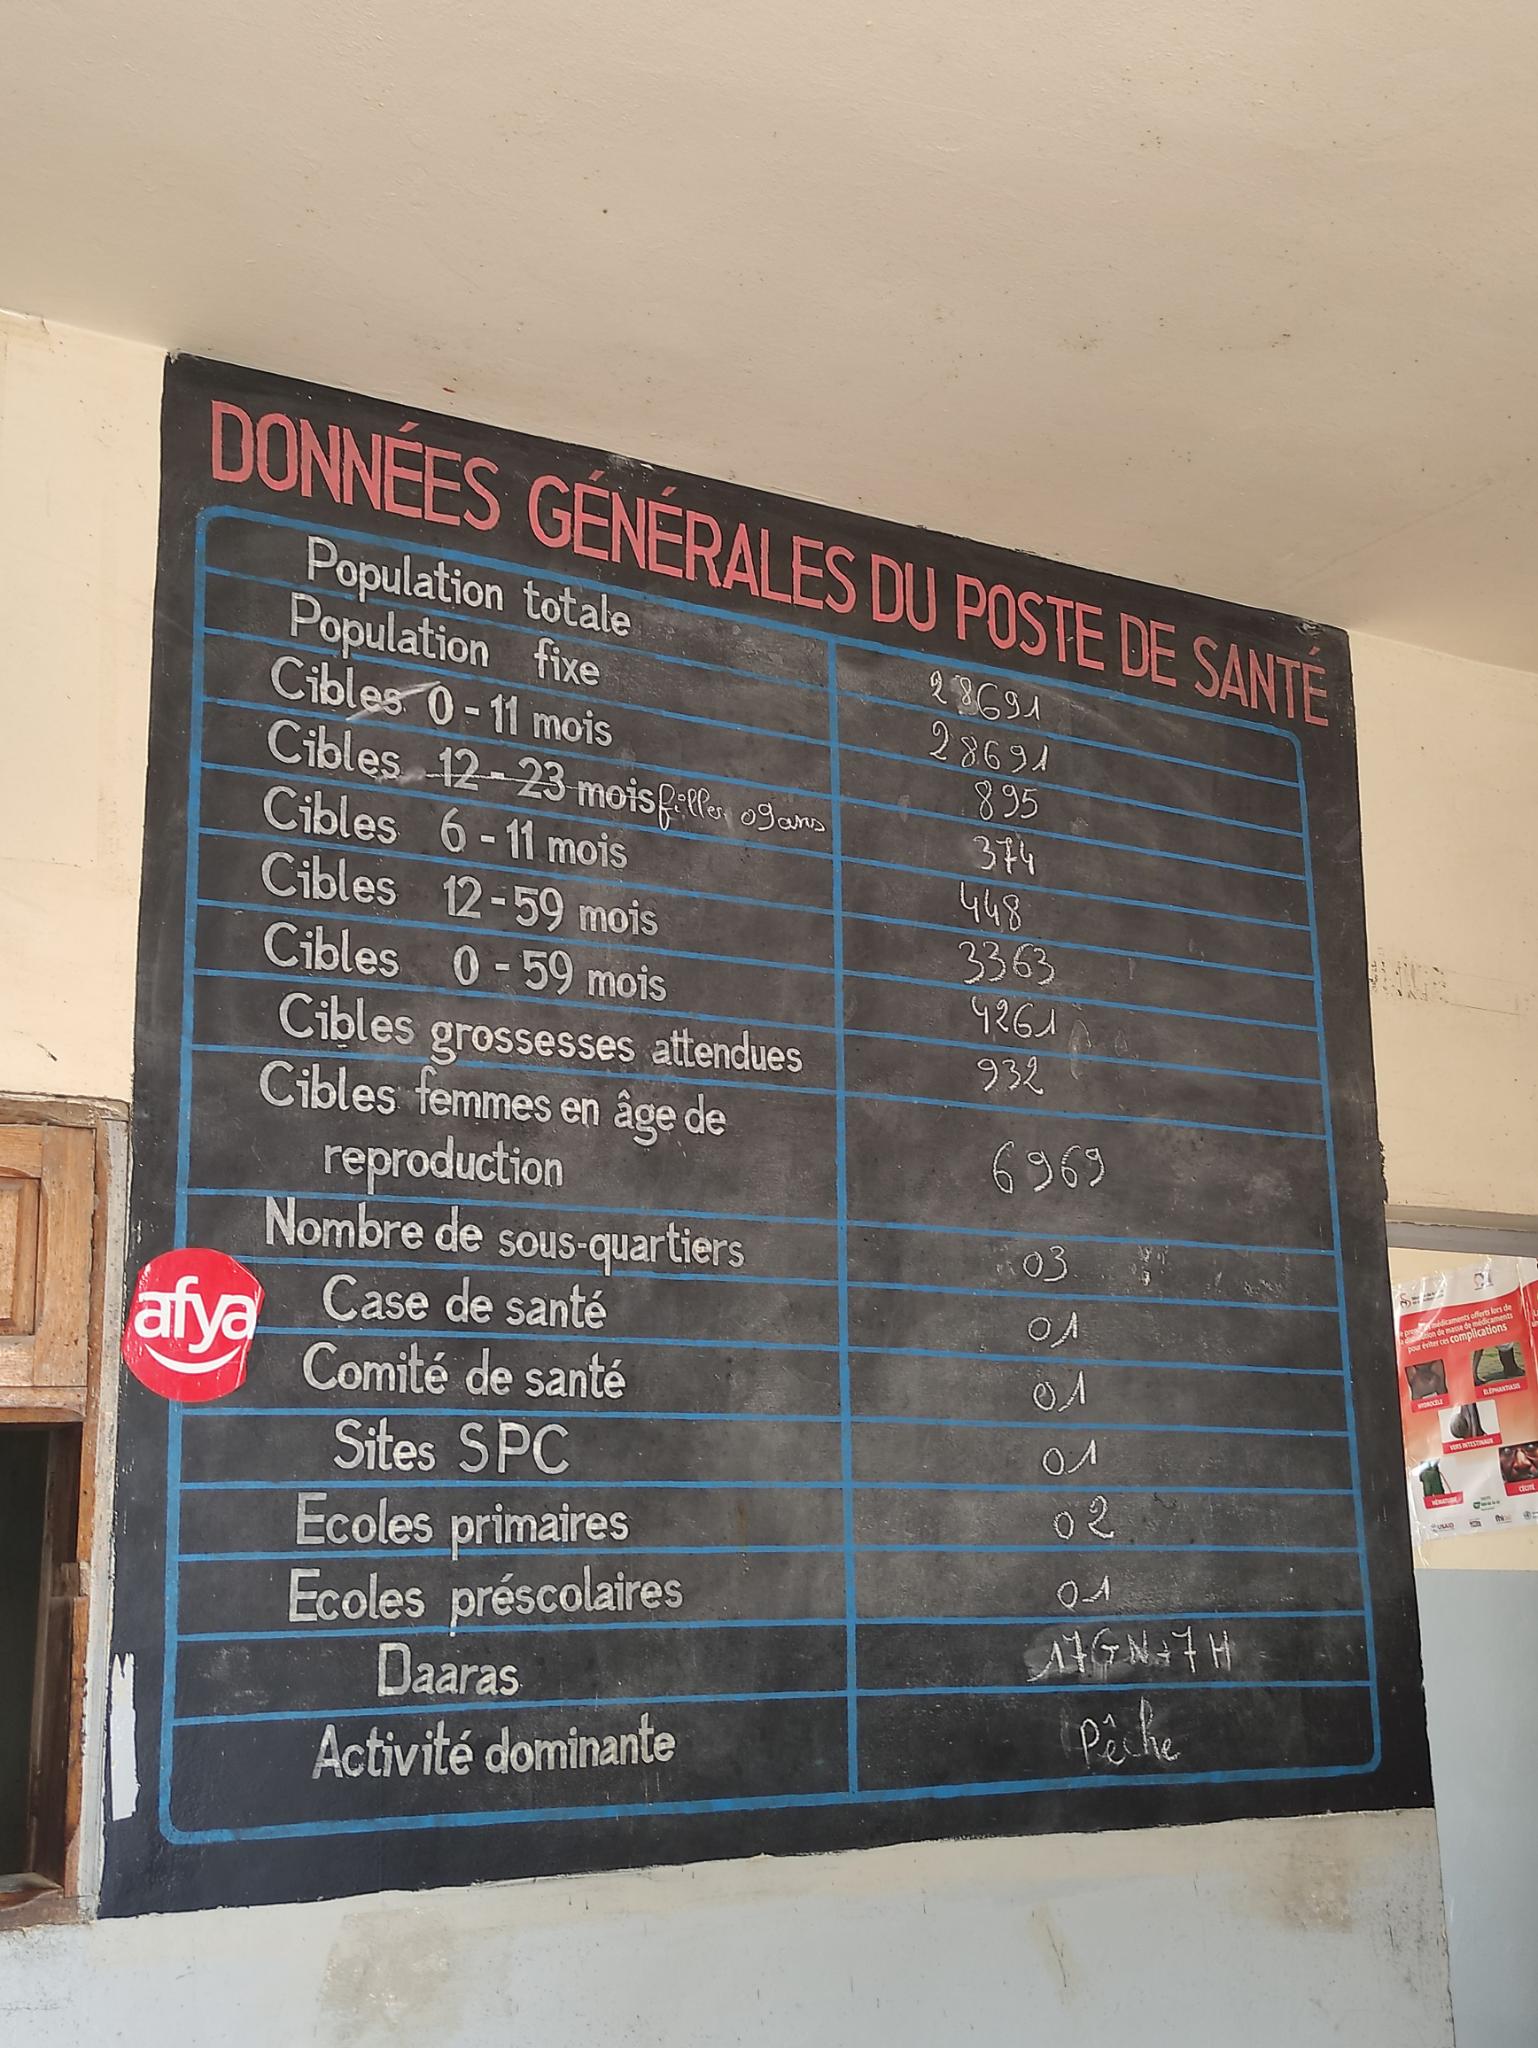 DONNÉES GÉNÉRALES DU POSTE DE SANTÉ
Population totale 28691
Population fixe 28691
Cibles 0 - 11 mois 895
Cibles 12 - 23 mois filles 09ans 374
Cibles 6 - 11 mois 448
Cibles 12 - 59 mois 3363
Cibles 0 - 59 mois 4261
Cibles grossesses attendues 932
Cibles femmes en âge de
reproduction 6969
Nombre de sous-quartiers 03
Case de santé 01
Comité de santé 01
Sites SPC 01
Ecoles primaires 02
Ecoles préscolaires 01
Daaras 17GN+7H
Activité dominante Pêche
afya
médicaments offerts lors de
de masse de médicaments
pour éviter ces complications
HYDROCÈLE
ÉLÉPHANTIASIS
VERS INTESTINAUX
HÉMATURIE
CÉCITÉ
USAID